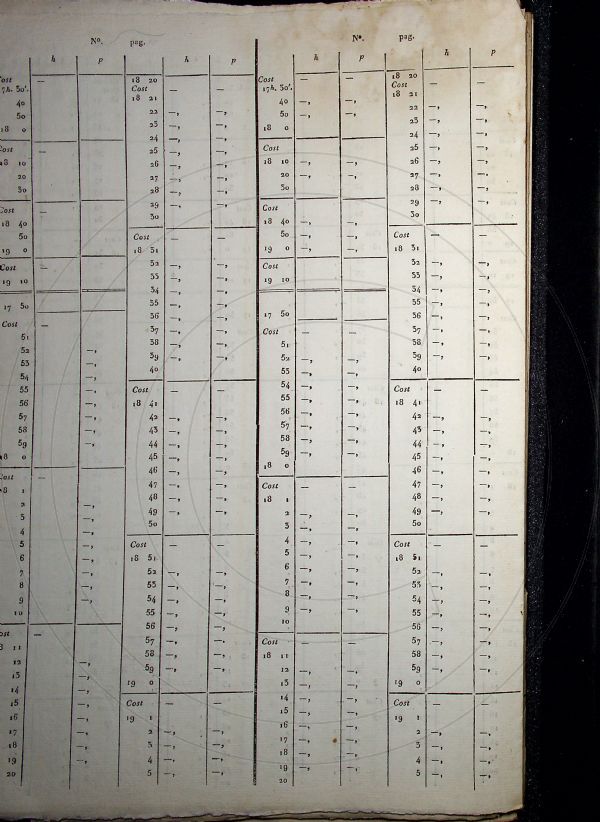 Nº. pag.
h p h p
ost —
7h. 30'.
40
50
18 0
ost —
18 10
20
30
Cost —
18 40
50
19 0
Cost —
19 10
17 50
Cost —
51
52 —,
53 —,
54 —,
55 —,
56 —,
57 —,
58 —,
59 —,
18 0
ost —
8 1
2 —,
3 —,
4 —,
5 —,
6 —,
7 —,
8 —,
9 —,
10
ost —
8 11
12 —,
13 —,
14 —,
15 —,
16 —,
17 —,
18 —,
19 —,
20
18 20
Cost — —
18 21
22 —, —,
23 —, —,
24 —, —,
25 —, —,
26 —, —,
27 —, —,
28 —, —,
29 —, —,
30
Cost — —
18 31
32 —, —,
33 —, —,
34 —, —,
35 —, —,
36 —, —,
37 —, —,
38 —, —,
39 —, —,
40
Cost — —
18 41
42 —, —,
43 —, —,
44 —, —,
45 —, —,
46 —, —,
47 —, —,
48 —, —,
49 —, —,
50
Cost — —
18 51
52 —, —,
53 —, —,
54 —, —,
55 —, —,
56 —, —,
57 —, —,
58 —, —,
59 —, —,
19 0
Cost — —
19 1
2 —, —,
3 —, —,
4 —, —,
5 —, —,
Nº. pag.
h p h p
Cost — —
17h. 30'.
40 —, —,
50 —, —,
18 0
Cost — —
18 10 —, —,
20 —, —,
30
Cost — —
18 40 —, —,
50 —, —,
19 0 —, —,
Cost — —
19 10
17 50
Cost — —
51
52 —, —,
53 —, —,
54 —, —,
55 —, —,
56 —, —,
57 —, —,
58 —, —,
59 —, —,
18 0
Cost — —
18 1
2 —, —,
3 —, —,
4 —, —,
5 —, —,
6 —, —,
7 —, —,
8 —, —,
9 —, —,
10
Cost — —
18 11
12 —, —,
13 —, —,
14 —, —,
15 —, —,
16 —, —,
17 —, —,
18 —, —,
19 —, —,
20
18 20
Cost — —
18 21
22 —, —,
23 —, —,
24 —, —,
25 —, —,
26 —, —,
27 —, —,
28 —, —,
29 —, —,
30
Cost — —
18 31
32 —, —,
33 —, —,
34 —, —,
35 —, —,
36 —, —,
37 —, —,
38 —, —,
39 —, —,
40
Cost — —
18 41
42 —, —,
43 —, —,
44 —, —,
45 —, —,
46 —, —,
47 —, —,
48 —, —,
49 —, —,
50
Cost — —
18 51
52 —, —,
53 —, —,
54 —, —,
55 —, —,
56 —, —,
57 —, —,
58 —, —,
59 —, —,
19 0
Cost — —
19 1
2 —, —,
3 —, —,
4 —, —,
5 —, —,